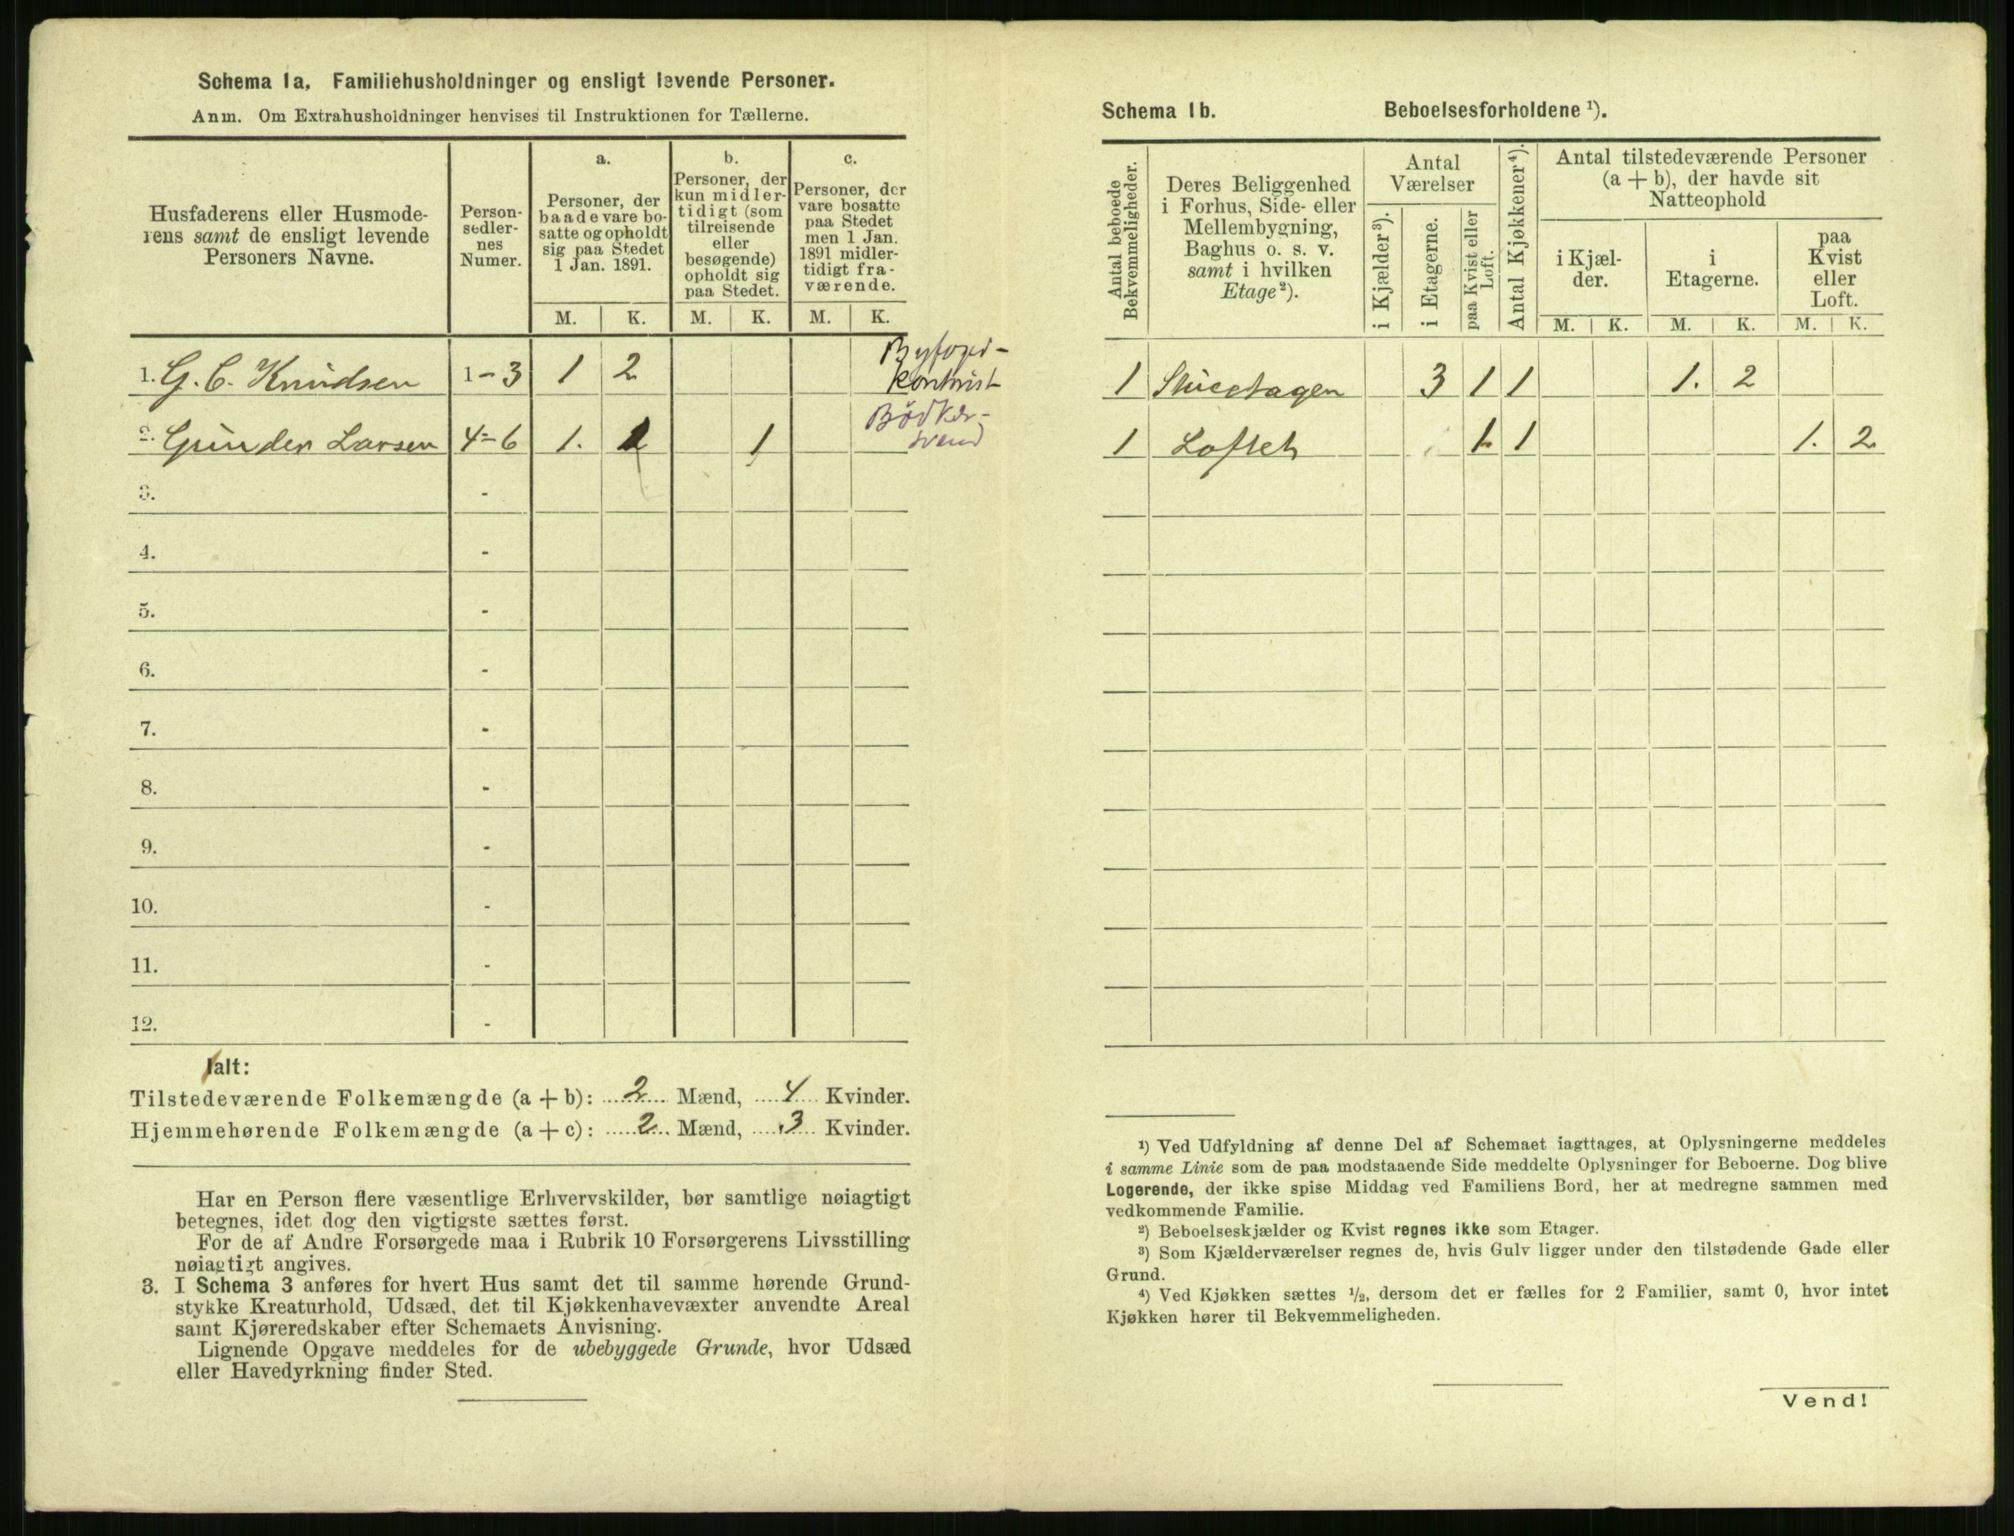 Schema 1a, Familiehusholdninger og ensligt levende Personer.
Anm. Om Extrahusholdninger henvises til Instruktionen for Tællerne.
Husfaderens eller Husmoderens samt de ensligt levende Personers Navne.
Personsedlernes Numer.
a.
Personer, der baade vare bosatte og opholdt sig paa Stedet 1 Jan. 1891.
b.
Personer, der kun midlertidigt (som tilreisende eller besøgende) opholdt sig paa Stedet.
c.
Personer, der vare bosatte paa Stedet men 1 Jan. 1891 midlertidigt fraværende.
M. K. M. K. M. K.
1. G. C. Knudsen 1-3 1 2
2. Gunder Larsen 4-6 1. 1 1 Bødkersvend
3. -
4. -
5. -
6. -
7. -
8. -
9. -
10. -
11. -
12. -
Ialt:
Tilstedeværende Folkemængde (a + b): 2 Mænd, 4 Kvinder.
Hjemmehørende Folkemængde (a + c): 2 Mænd, 3 Kvinder.
Har en Person flere væsentlige Erhvervskilder, bør samtlige nøiagtigt
betegnes, idet dog den vigtigste sættes først.
For de af Andre Forsørgede maa i Rubrik 10 Forsørgerens Livsstilling
nøiagtigt angives.
3. I Schema 3 anføres for hvert Hus samt det til samme hørende Grund-
stykke Kreaturhold, Udsæd, det til Kjøkkenhavevæxter anvendte Areal
samt Kjøreredskaber efter Schemaets Anvisning.
Lignende Opgave meddeles for de ubebyggede Grunde, hvor Udsæd
eller Havedyrkning finder Sted.
Schema 1b. Beboelsesforholdene ¹).
Antal beboede Bekvemmeligheder.
Deres Beliggenhed i Forhus, Side- eller Mellembygning, Baghus o. s. v. samt i hvilken Etage²).
Antal Værelser
i Kjælder³).
i Etagerne.
paa Kvist eller Loft.
Antal Kjøkkener⁴).
Antal tilstedeværende Personer (a + b), der havde sit Natteophold
i Kjælder.
i Etagerne.
paa Kvist eller Loft.
M. K. M. K. M. K.
1 3 1 1 1. 2
1 Loftet 1 1 1. 2
¹) Ved Udfyldning af denne Del af Schemaet iagttages, at Oplysningerne meddeles
i samme Linie som de paa modstaaende Side meddelte Oplysninger for Beboerne. Dog blive
Logerende, der ikke spise Middag ved Familiens Bord, her at medregne sammen med
vedkommende Familie.
²) Beboelseskjælder og Kvist regnes ikke som Etager.
³) Som Kjælderværelser regnes de, hvis Gulv ligger under den tilstødende Gade eller
Grund.
⁴) Ved Kjøkken sættes ½, dersom det er fælles for 2 Familier, samt 0, hvor intet
Kjøkken hører til Bekvemmeligheden.
Vend!